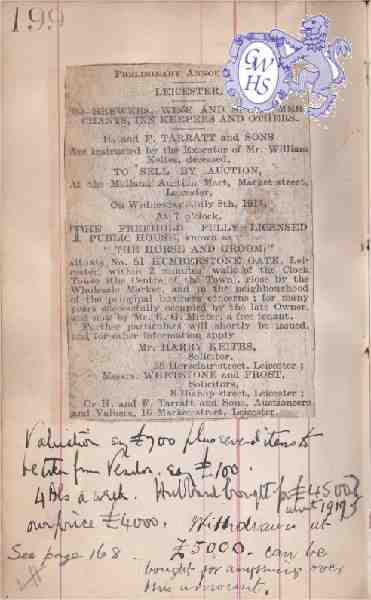 199
GWHS
PRELIMINARY
LEICESTER.
TO BREWERS, WINE AND
CHANTS, INN KEEPERS AND OTHERS.
H. and F. TARRATT and SONS
Are instructed by the Executor of Mr. William
Keites, deceased,
TO SELL BY AUCTION,
At the Midland Auction Mart, Market-street,
Leicester,
On Wednesday July 8th,
At 7 o'clock,
THE FREEHOLD FULLY-LICENSED
PUBLIC HOUSE, known as
"THE HORSE AND GROOM,"
situate No. 51 HUMBERSTONE GATE, Lei-
cester, within 2 minutes' walk of the Clock
Tower (the Centre of the Town), close by the
Wholesale Market, and in the neighbourhood
of the principal business concerns; for many
years successfully occupied by the late Owner,
and now by Mr. G. a free tenant.
Further particulars will shortly be issued,
and for other information apply
Mr. HARRY KEITES,
Solicitor,
Horsefair-street, Leicester;
Messrs. and FROST,
Solicitors,
8 Bishop-street, Leicester;
Or H. and F. Tarratt and Sons, Auctioneers
and Valuers, 16 Market-street, Leicester.
Valuation say £700 plus several items to
be taken from Vendor, say £100.
4 Bls a week. Hubbard bought for £4500
our price £4000. Withdrawn at
See page 168. £5000. can be
bought for anything over
this amount.